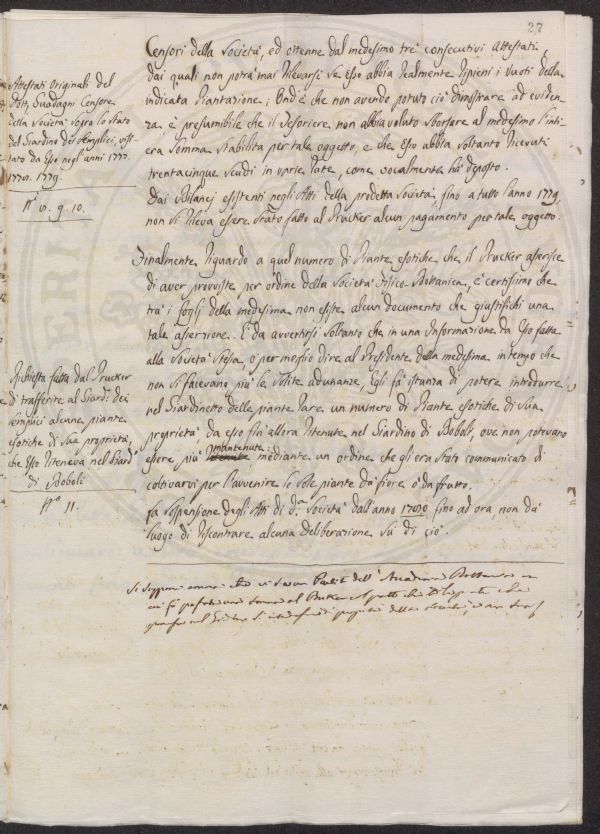 27
Censori della Società, ed ottenne dal medesimo trè consecutivi Attestati,
dai quali non potrà mai rilevarsi se Esso abbia realmente ripieni i vuoti della
indicata Piantazione; Ond'è che non avendo potuto ciò dimostrare ad eviden-
za è presumibile che il Tesoriere non abbia voluto sborsare al medesimo l'inti-
era somma stabilita per tale oggetto, e che Esso abbia soltanto ricevuti
trentacinque scudi in varie rate, come vocalmente hà deposto.
Dai Bilanci esistenti negli Atti della predetta Società, fino a tutto l'anno 1779,
non si rileva essere stato fatto al Prucker alcun pagamento per tale oggetto.
Attestati Originali del
Dott. Guadagni Censore
della Società sopra lo stato
del Giardino dei Semplici, visi-
tato da Esso negli anni 1777.
1778. 1779.
N.i 8. 9. 10.
Finalmente riguardo a quel numero di Piante esotiche che il Prucker asserisce
di aver proviste per ordine della Società Fisico-Bottanica, è certissimo che
trà i fogli della medesima non esiste alcun documento che giustifichi una
tale asserzione. È da avvertirsi soltanto che in una Informazione da Esso fatta
alla Società stessa, ò per meglio dire al Presidente della medesima in tempo che
non si facevano più le solite adunanze, Egli fà istanza di potere introdurre
nel Giardinetto delle piante rare un numero di Piante esotiche di sua
proprietà da esso fin'allora ritenute nel Giardino di Boboli, ove non potevano
essere più mantenute mediante un ordine che gli era stato communicato di
coltivarvi per l'avvenire le sole piante da fiore ò da frutto.
La sospensione degli Atti di d.a Società dall'anno 1780 fino ad ora, non dà
luogo di riscontrare alcuna deliberazione sù di ciò
Richiesta fatta dal Prucker
di trasferire al Giard: dei
Semplici alcune piante
esotiche di sua proprietà,
che Esso riteneva nel Giard.o
di Boboli
N.o 11.
Si soppone ancora che vi sia un Partito dell'Accademia Bottanica in
cui si